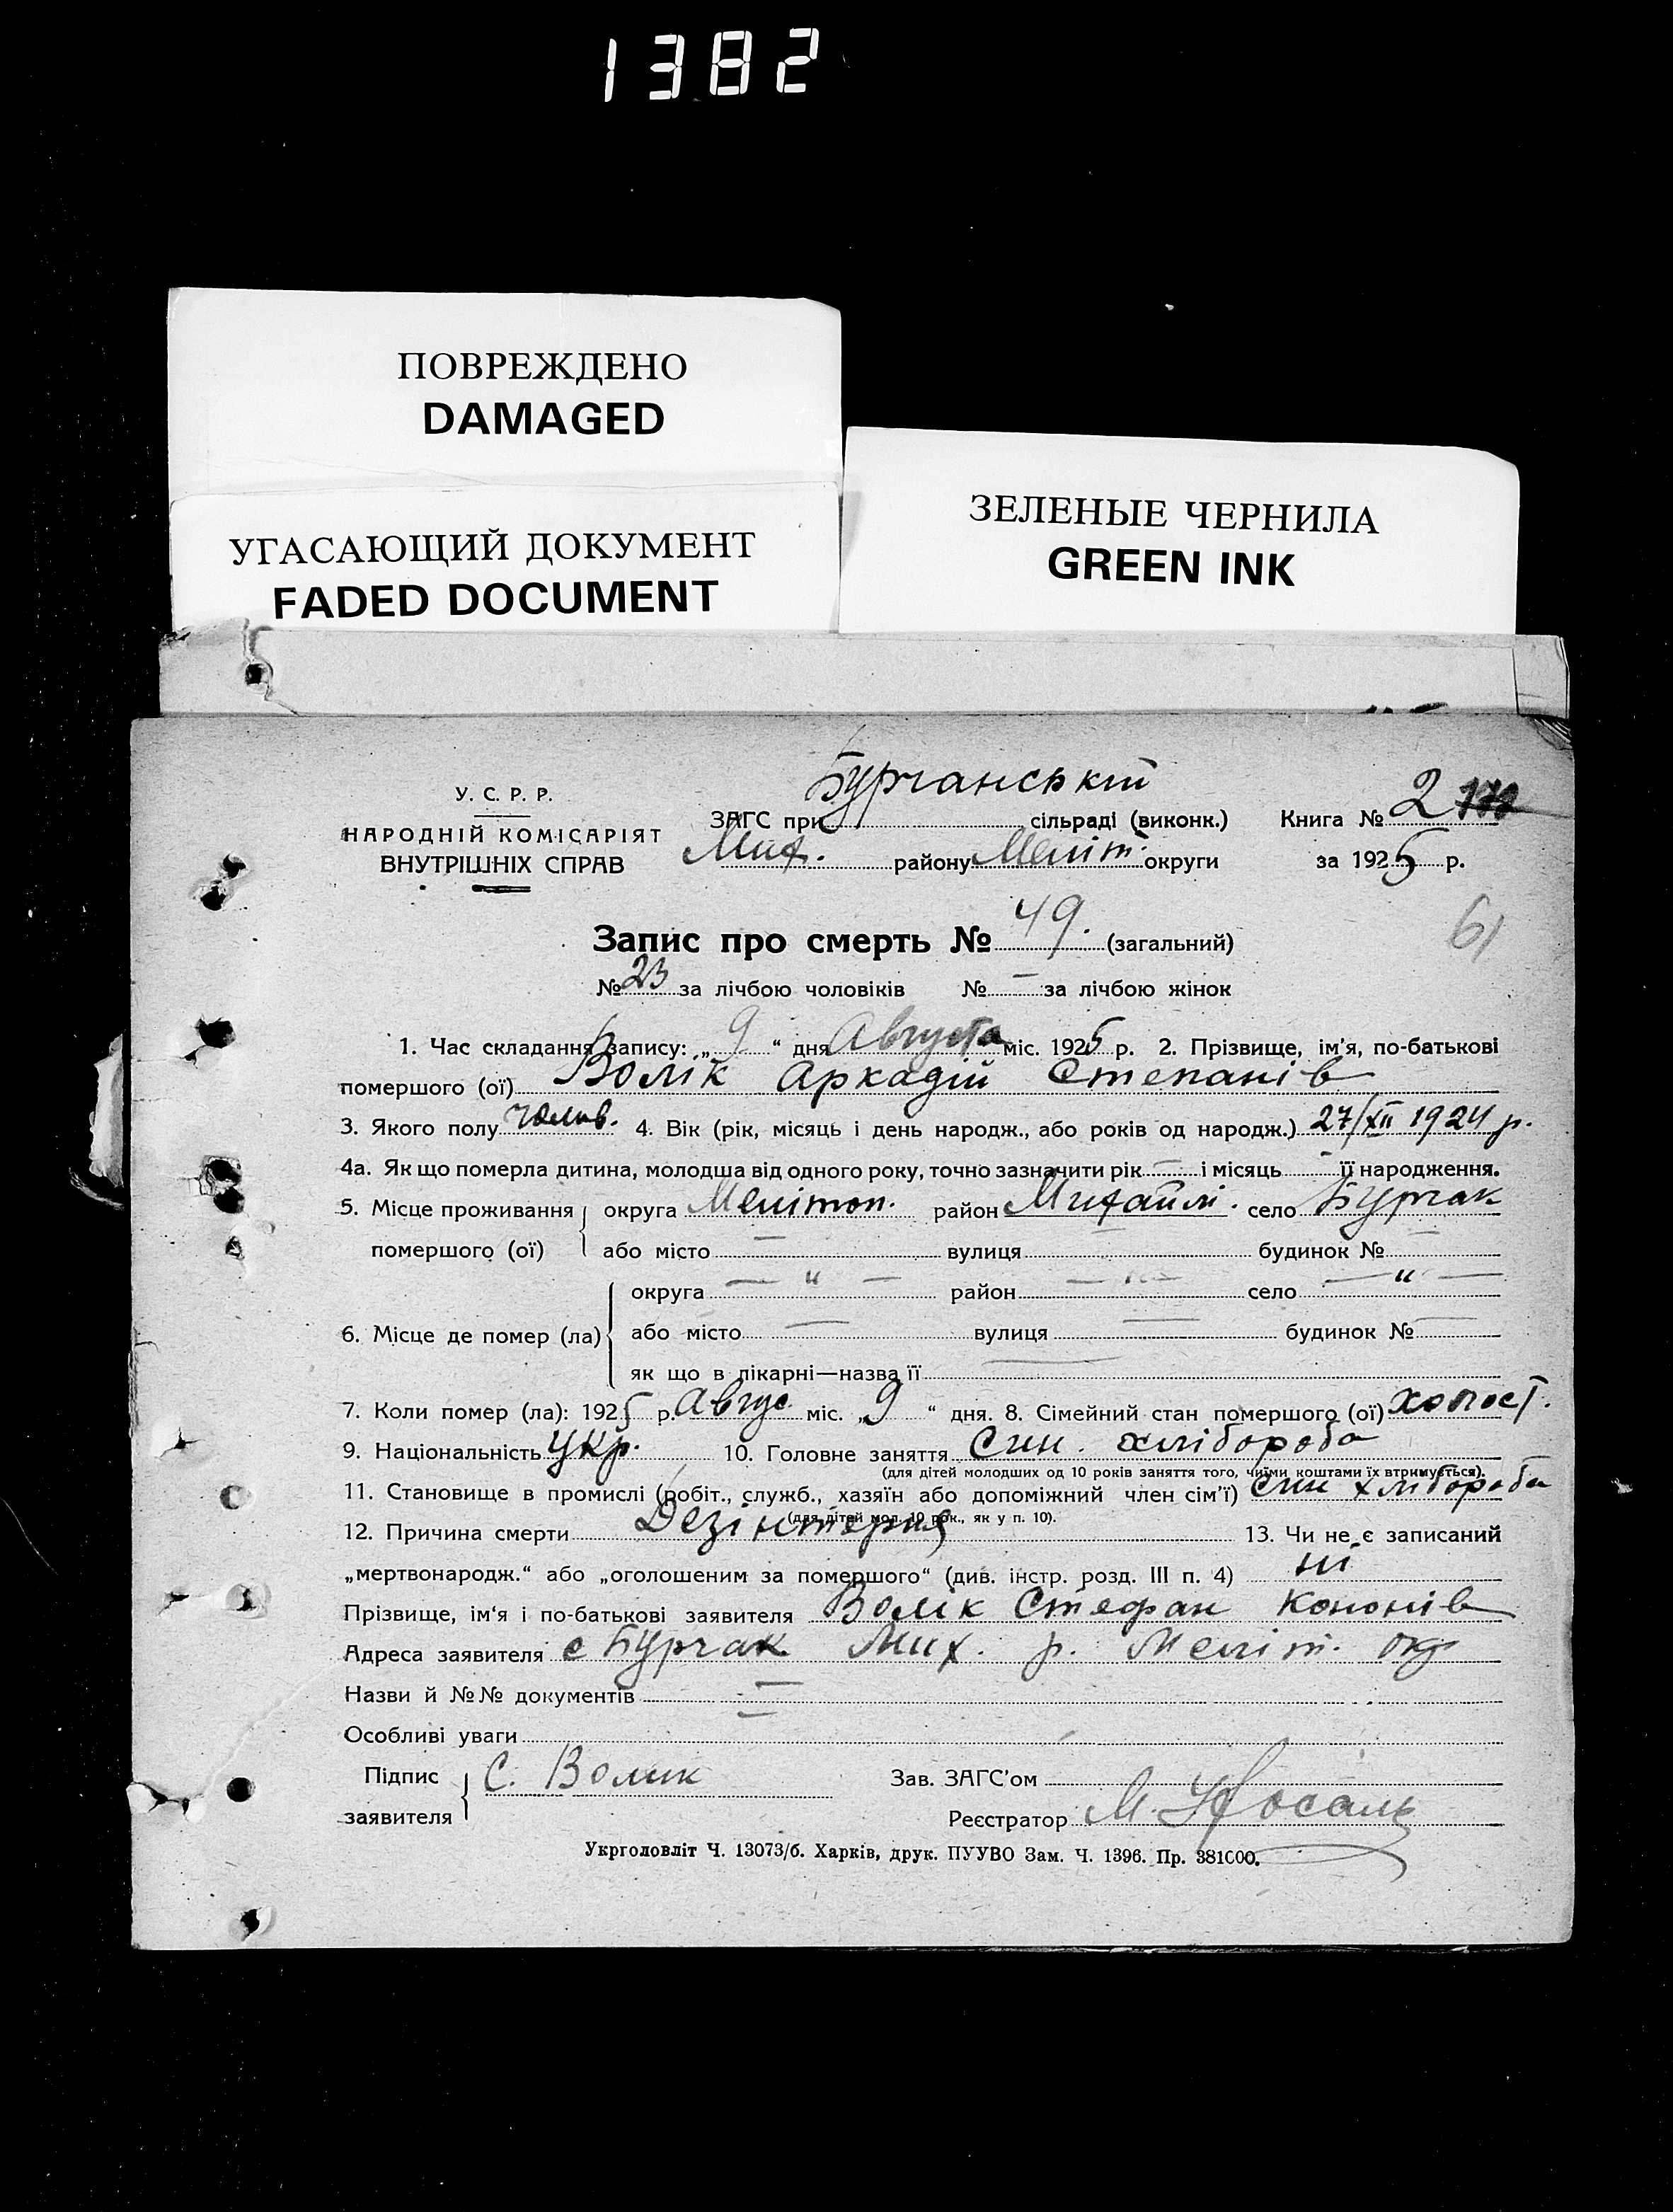 1382
ПОВРЕЖДЕНО
DAMAGED
УГАСАЮЩИЙ ДОКУМЕНТ
FADED DOCUMENT
ЗЕЛЕНЫЕ ЧЕРНИЛА
GREEN INK
У. С. Р. Р.
НАРОДНІЙ КОМІСАРІЯТ
ВНУТРІШНІХ СПРАВ
ЗАГС при Бурчанській сільраді (виконк.) Книга № 2
Мих. району Меліт. округи за 1925 р.
61
Запис про смерть № 49. (загальний)
№ 23 за лічбою чоловіків № — за лічбою жінок
1. Час складання запису: „ 9 “ дня Августа міс. 1925 р. 2. Прізвище, ім'я, по-батькові
помершого (ої) Волік Аркадій Степанів
3. Якого полу чолов. 4. Вік (рік, місяць і день народж., або років од народж.) 27/XII 1924 р.
4а. Як що померла дитина, молодша від одного року, точно зазначити рік — і місяць — її народження.
5. Місце проживання помершого (ої) округа Мелітоп. район Михайлі. село Бурчак
або місто — вулиця — будинок № —
6. Місце де помер (ла) округа — „ — район — „ — село — „ —
або місто — вулиця — будинок № —
як що в лікарні—назва її —
7. Коли помер (ла): 1925 р. Авгус міс. „ 9 “ дня. 8. Сімейний стан помершого (ої) холост.
9. Національність укр. 10. Головне заняття Син. хлібороба
(для дітей молодших од 10 років заняття того, чиїми коштами їх втримується).
11. Становище в промислі (робіт., служб., хазяїн або допоміжний член сім'ї) Син хлібороба
(для дітей мол. 10 рок., як у п. 10).
12. Причина смерти Дезінтерия 13. Чи не є записаний
„мертвонародж.“ або „оголошеним за помершого“ (див. інстр. розд. III п. 4) ні
Прізвище, ім'я і по-батькові заявителя Волік Стефан Кононів
Адреса заявителя с Бурчак Мих. р. Меліт. окр
Назви й №№ документів —
Особливі уваги —
Підпис заявителя С. Волик Зав. ЗАГС'ом
Реєстратор М.
Укрголовліт Ч. 13073/б. Харків, друк. ПУУВО Зам. Ч. 1396. Пр. 381000.